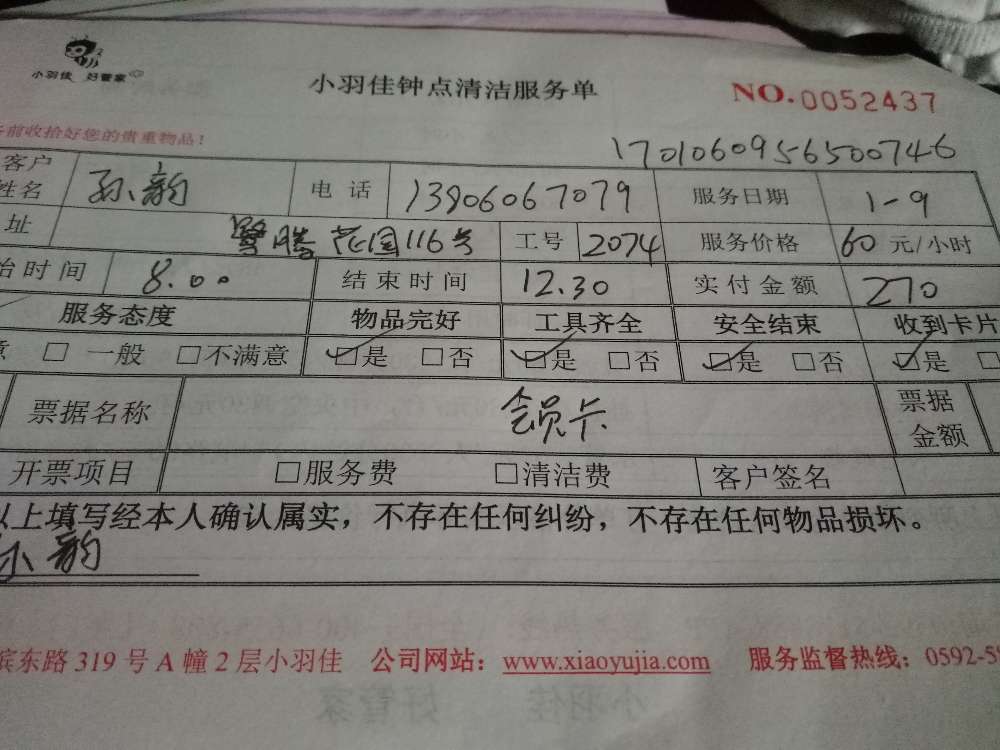 小羽佳 好管家
小羽佳钟点清洁服务单 NO.0052437
前收拾好您的贵重物品！
1701060956500746
客户姓名 孙韵 电话 13906067079 服务日期 1-9
址 擎腾花园116号 工号 2074 服务价格 60元/小时
时间 8.00 结束时间 12.30 实付金额 270
服务态度 物品完好 工具齐全 安全结束 收到卡片
□一般 □不满意 ☑是 □否 ☑是 □否 ☑是 □否 ☑是 □
票据名称 会员卡 票据金额
开票项目 □服务费 □清洁费 客户签名
以上填写经本人确认属实，不存在任何纠纷，不存在任何物品损坏。
孙韵
滨东路319号A幢2层小羽佳 公司网站：www.xiaoyujia.com 服务监督热线：0592-5